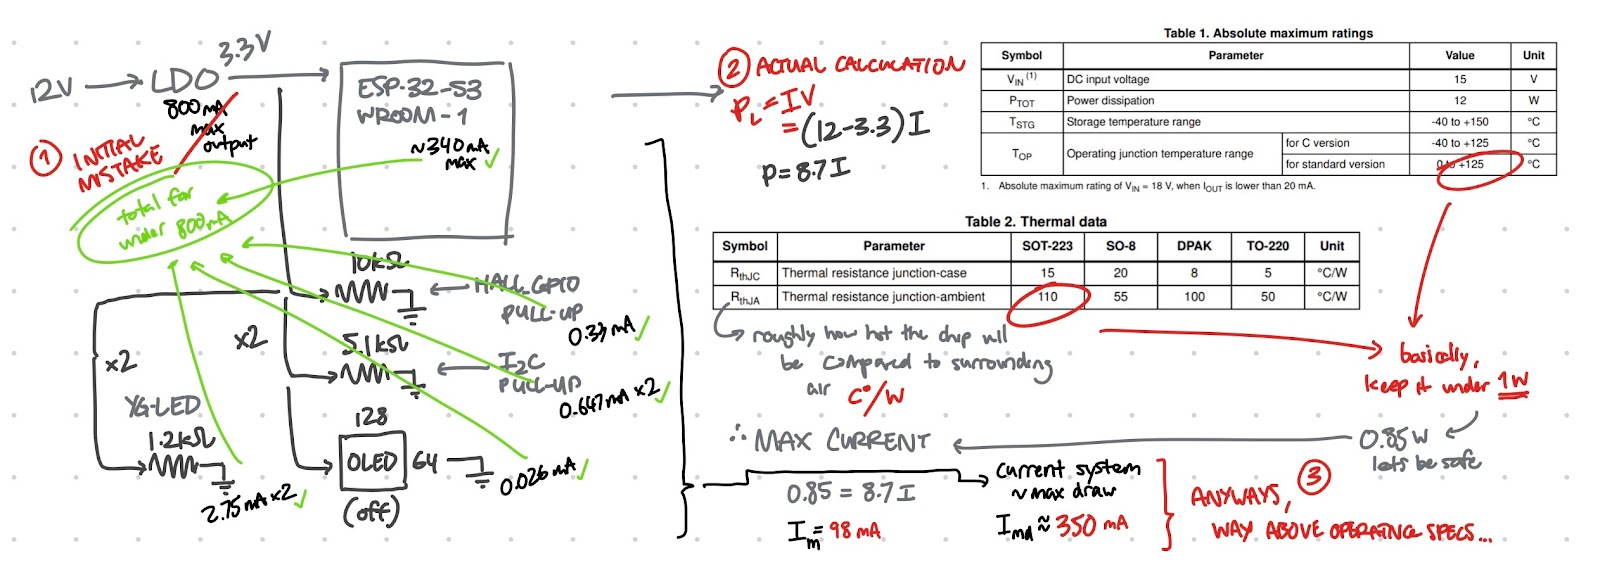 12V → LDO
3.3V
800mA
max
output
① INITIAL
MISTAKE
total far
under 800mA
ESP-32-S3
WROOM-1
~340mA
max ✓
10kΩ
HALL_GPIO
PULL-UP
0.33mA ✓
x2
5.1kΩ
I2C
PULL-UP
0.647mA x2 ✓
x2
YG-LED
1.2kΩ
2.75mA x2 ✓
128
OLED
64
(off)
0.026mA ✓
② ACTUAL CALCULATION
P_L = IV
= (12-3.3) I
P = 8.7 I
Table 1. Absolute maximum ratings
Symbol Parameter Value Unit
VIN (1) DC input voltage 15 V
PTOT Power dissipation 12 W
TSTG Storage temperature range -40 to +150 °C
TOP Operating junction temperature range for C version -40 to +125 °C
for standard version 0 to +125 °C
1. Absolute maximum rating of VIN = 18 V, when IOUT is lower than 20 mA.
Table 2. Thermal data
Symbol Parameter SOT-223 SO-8 DPAK TO-220 Unit
RthJC Thermal resistance junction-case 15 20 8 5 °C/W
RthJA Thermal resistance junction-ambient 110 55 100 50 °C/W
roughly how hot the chip will
be compared to surrounding
air C°/W
basically,
keep it under 1W
0.85W
lets be safe
∴ MAX CURRENT
0.85 = 8.7 I
Im = 98 mA
current system
~ max draw
Imd ≈ 350 mA
③
ANYWAYS,
WAY ABOVE OPERATING SPECS...